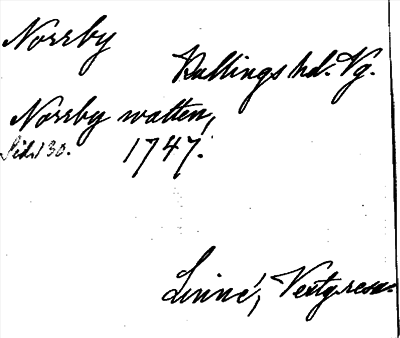 Norrby
Kullings hd. Vg.
Norrby watten,
Sid. 130. 1747.
Linné, Vestg.resa.